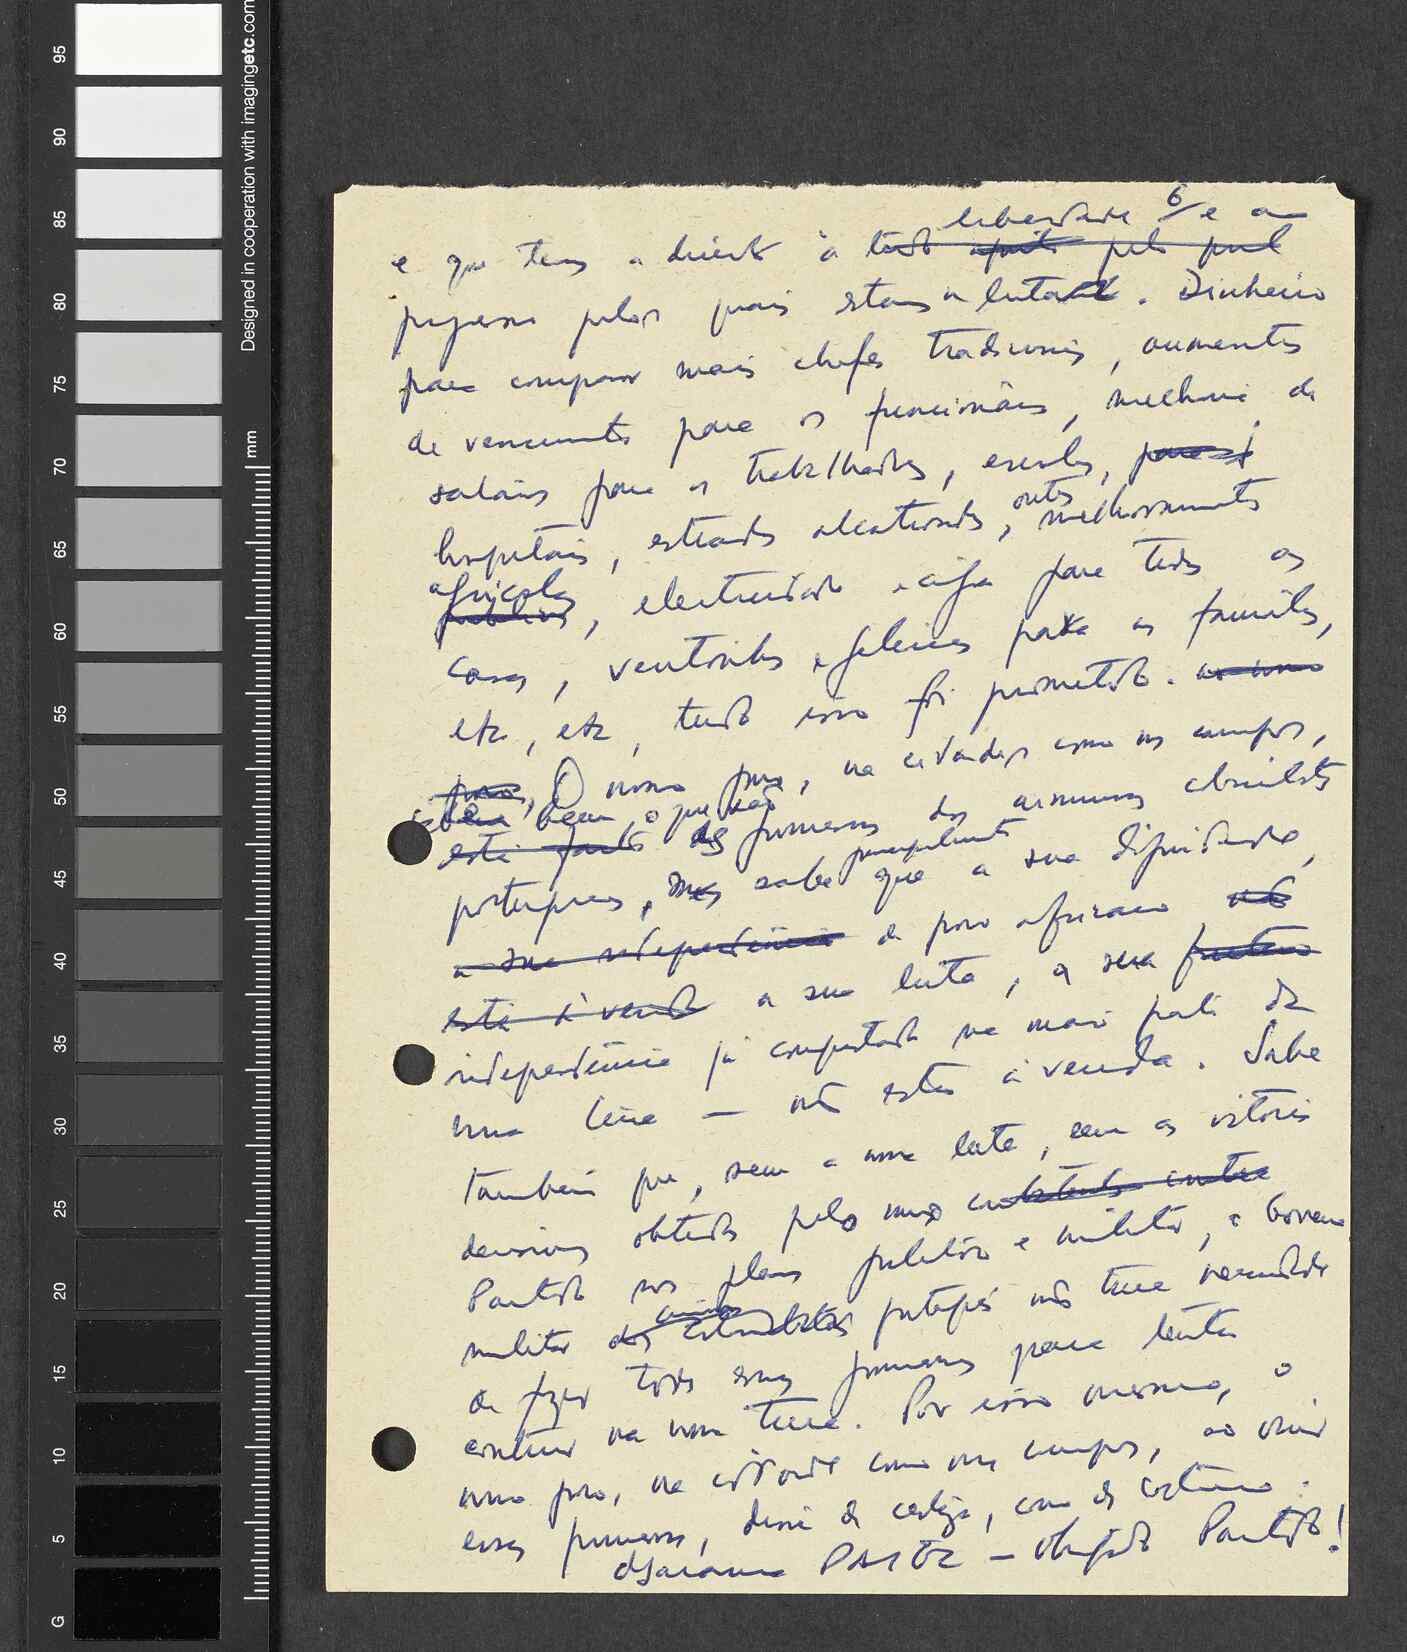 Designed in cooperation with imagingetc.com
mm
95
90
85
80
75
70
65
60
55
50
45
40
35
30
25
20
15
10
5
G
6
liberdade e ao
e que tem o direito à tudo aquilo pelo qual
progresso pelos quais estamos a lutar. Dinheiro
para comprar mais chefes tradicionais, aumentos
de vencimentos para os funcionários, melhoria de
salários para os trabalhadores, escolas,
hospitais, estradas alcatroadas, outros melhoramentos
agrícolas
públicos, electricidade e água para todas as
casas, ventoinhas e geleiras para as famílias,
etc, etc, tudo isso foi prometido.
O nosso povo, nas cidades como nos campos,
sabe bem o que são
está farto das promessas dos criminosos colonialistas
portugueses, mas sabe principalmente que a sua dignidade,
a sua independência de povo africano não
está à venda a sua luta, a sua
independência já conquistada na maior parte da
nossa terra — não estão à venda. Sabe
também que, sem a nossa luta, sem as vitórias
decisivas obtidas pelo nosso
Partido nos planos político e militar, o Governo
militar dos colonialistas português não teria necessidade
de fazer todas essas promessas para tentar
continuar na nossa terra. Por isso mesmo, o
nosso povo, nas cidades como nos campos, ao ouvir
essas promessas, dirá de certeza, como de costume:
djarama PAIGC — obrigado Partido!